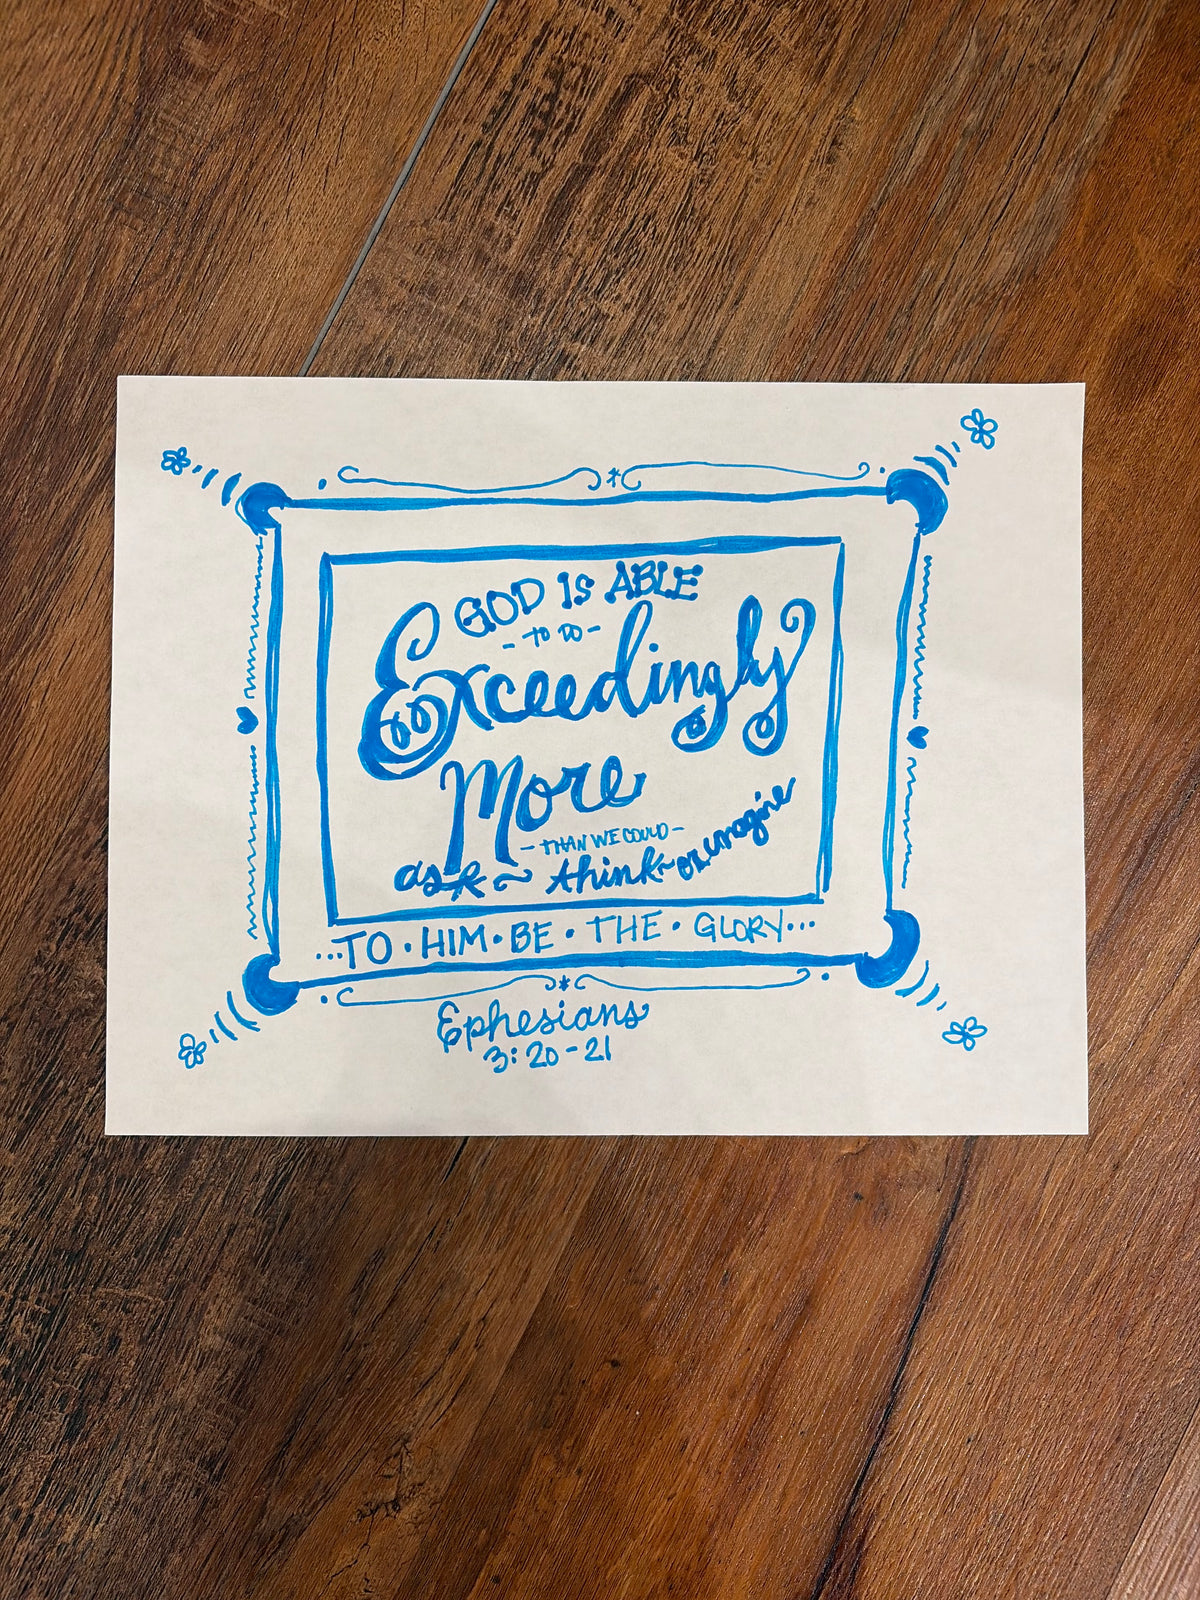 GOD IS ABLE
- TO DO -
Exceedingly
More
- THAN WE COULD -
ask ~ think ~ or imagine
...TO • HIM • BE • THE • GLORY...
Ephesians
3:20-21